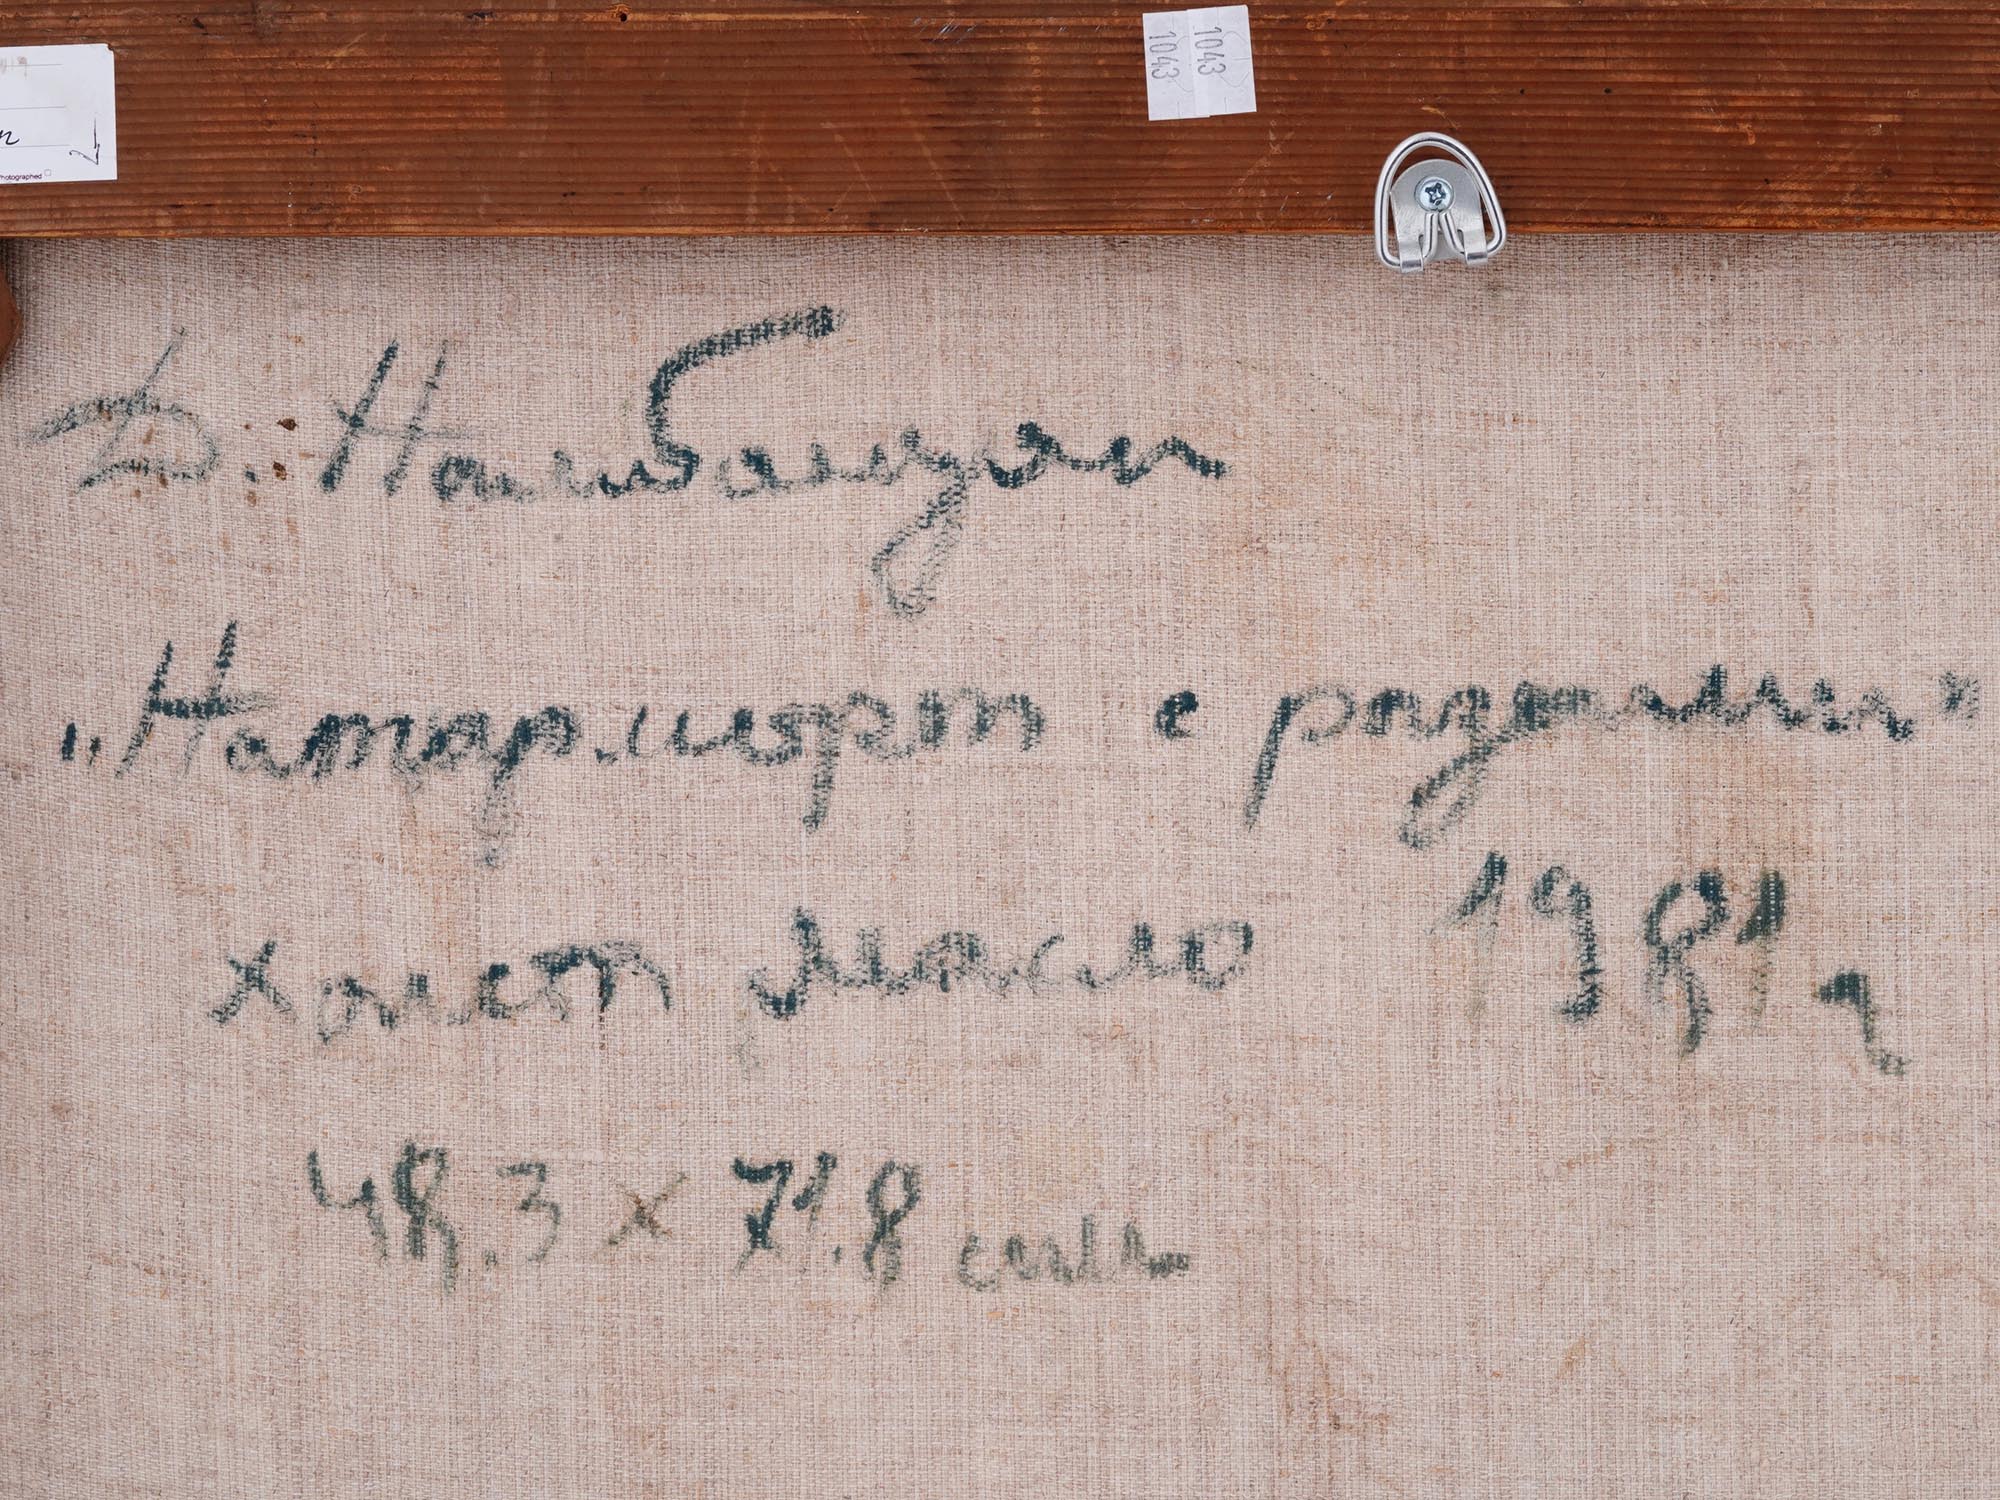 1043
1043
2
Photographed
Д. Налбандян
„Натюрморт с розами"
холст масло 1981 г
48.3 × 71.8 см